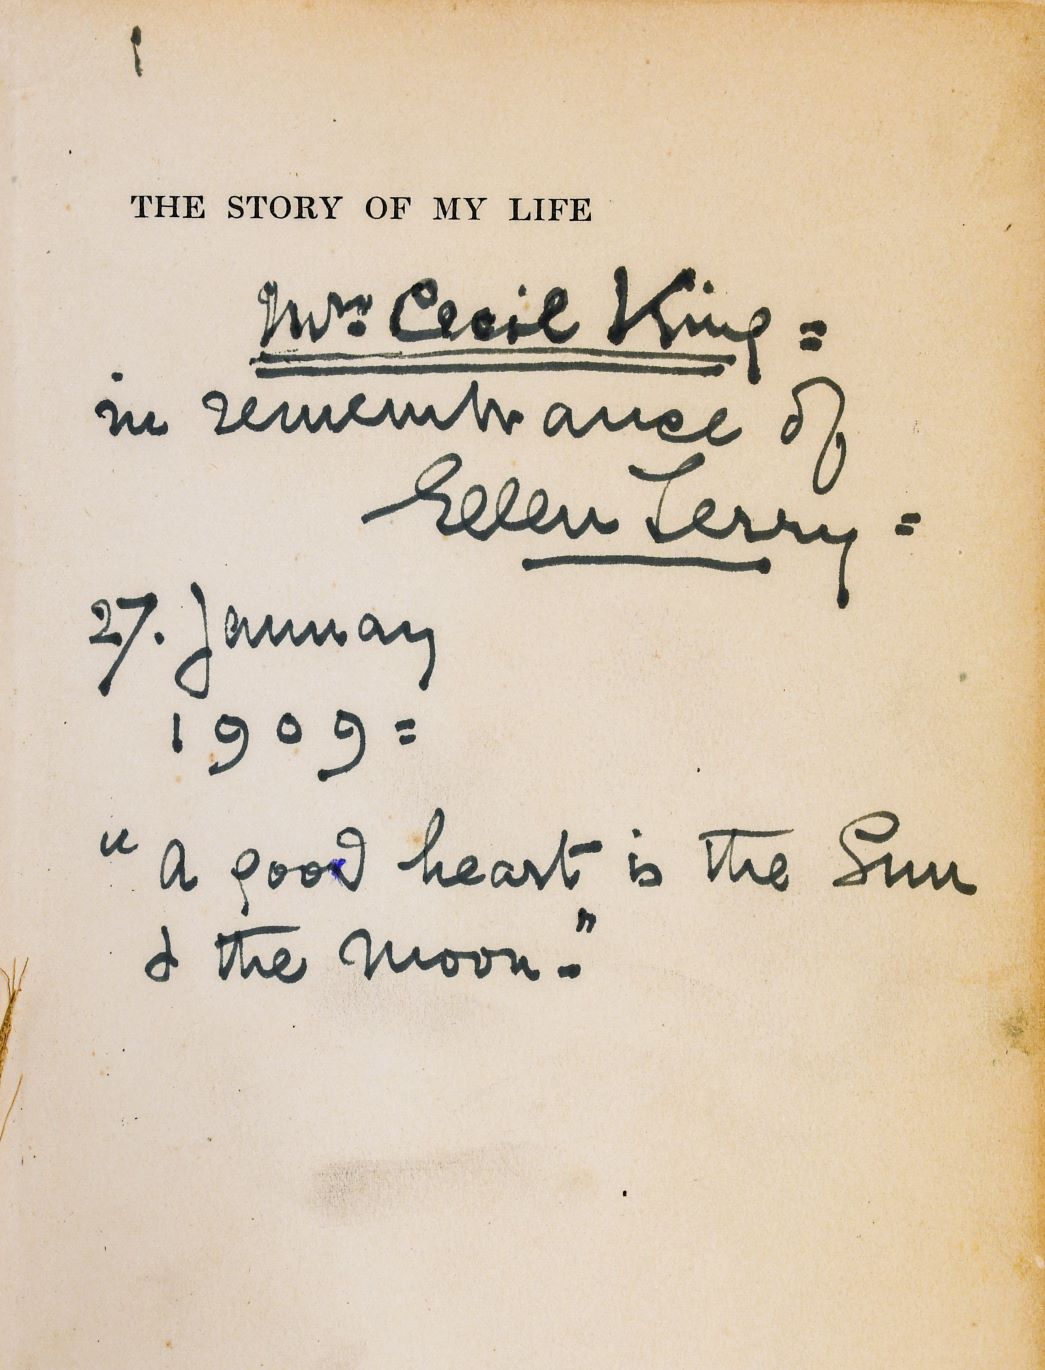 THE STORY OF MY LIFE
Mrs. Cecil King =
in remembrance of
Ellen Terry =
27. January
1909 =
"A good heart is the Sun
& the Moon."